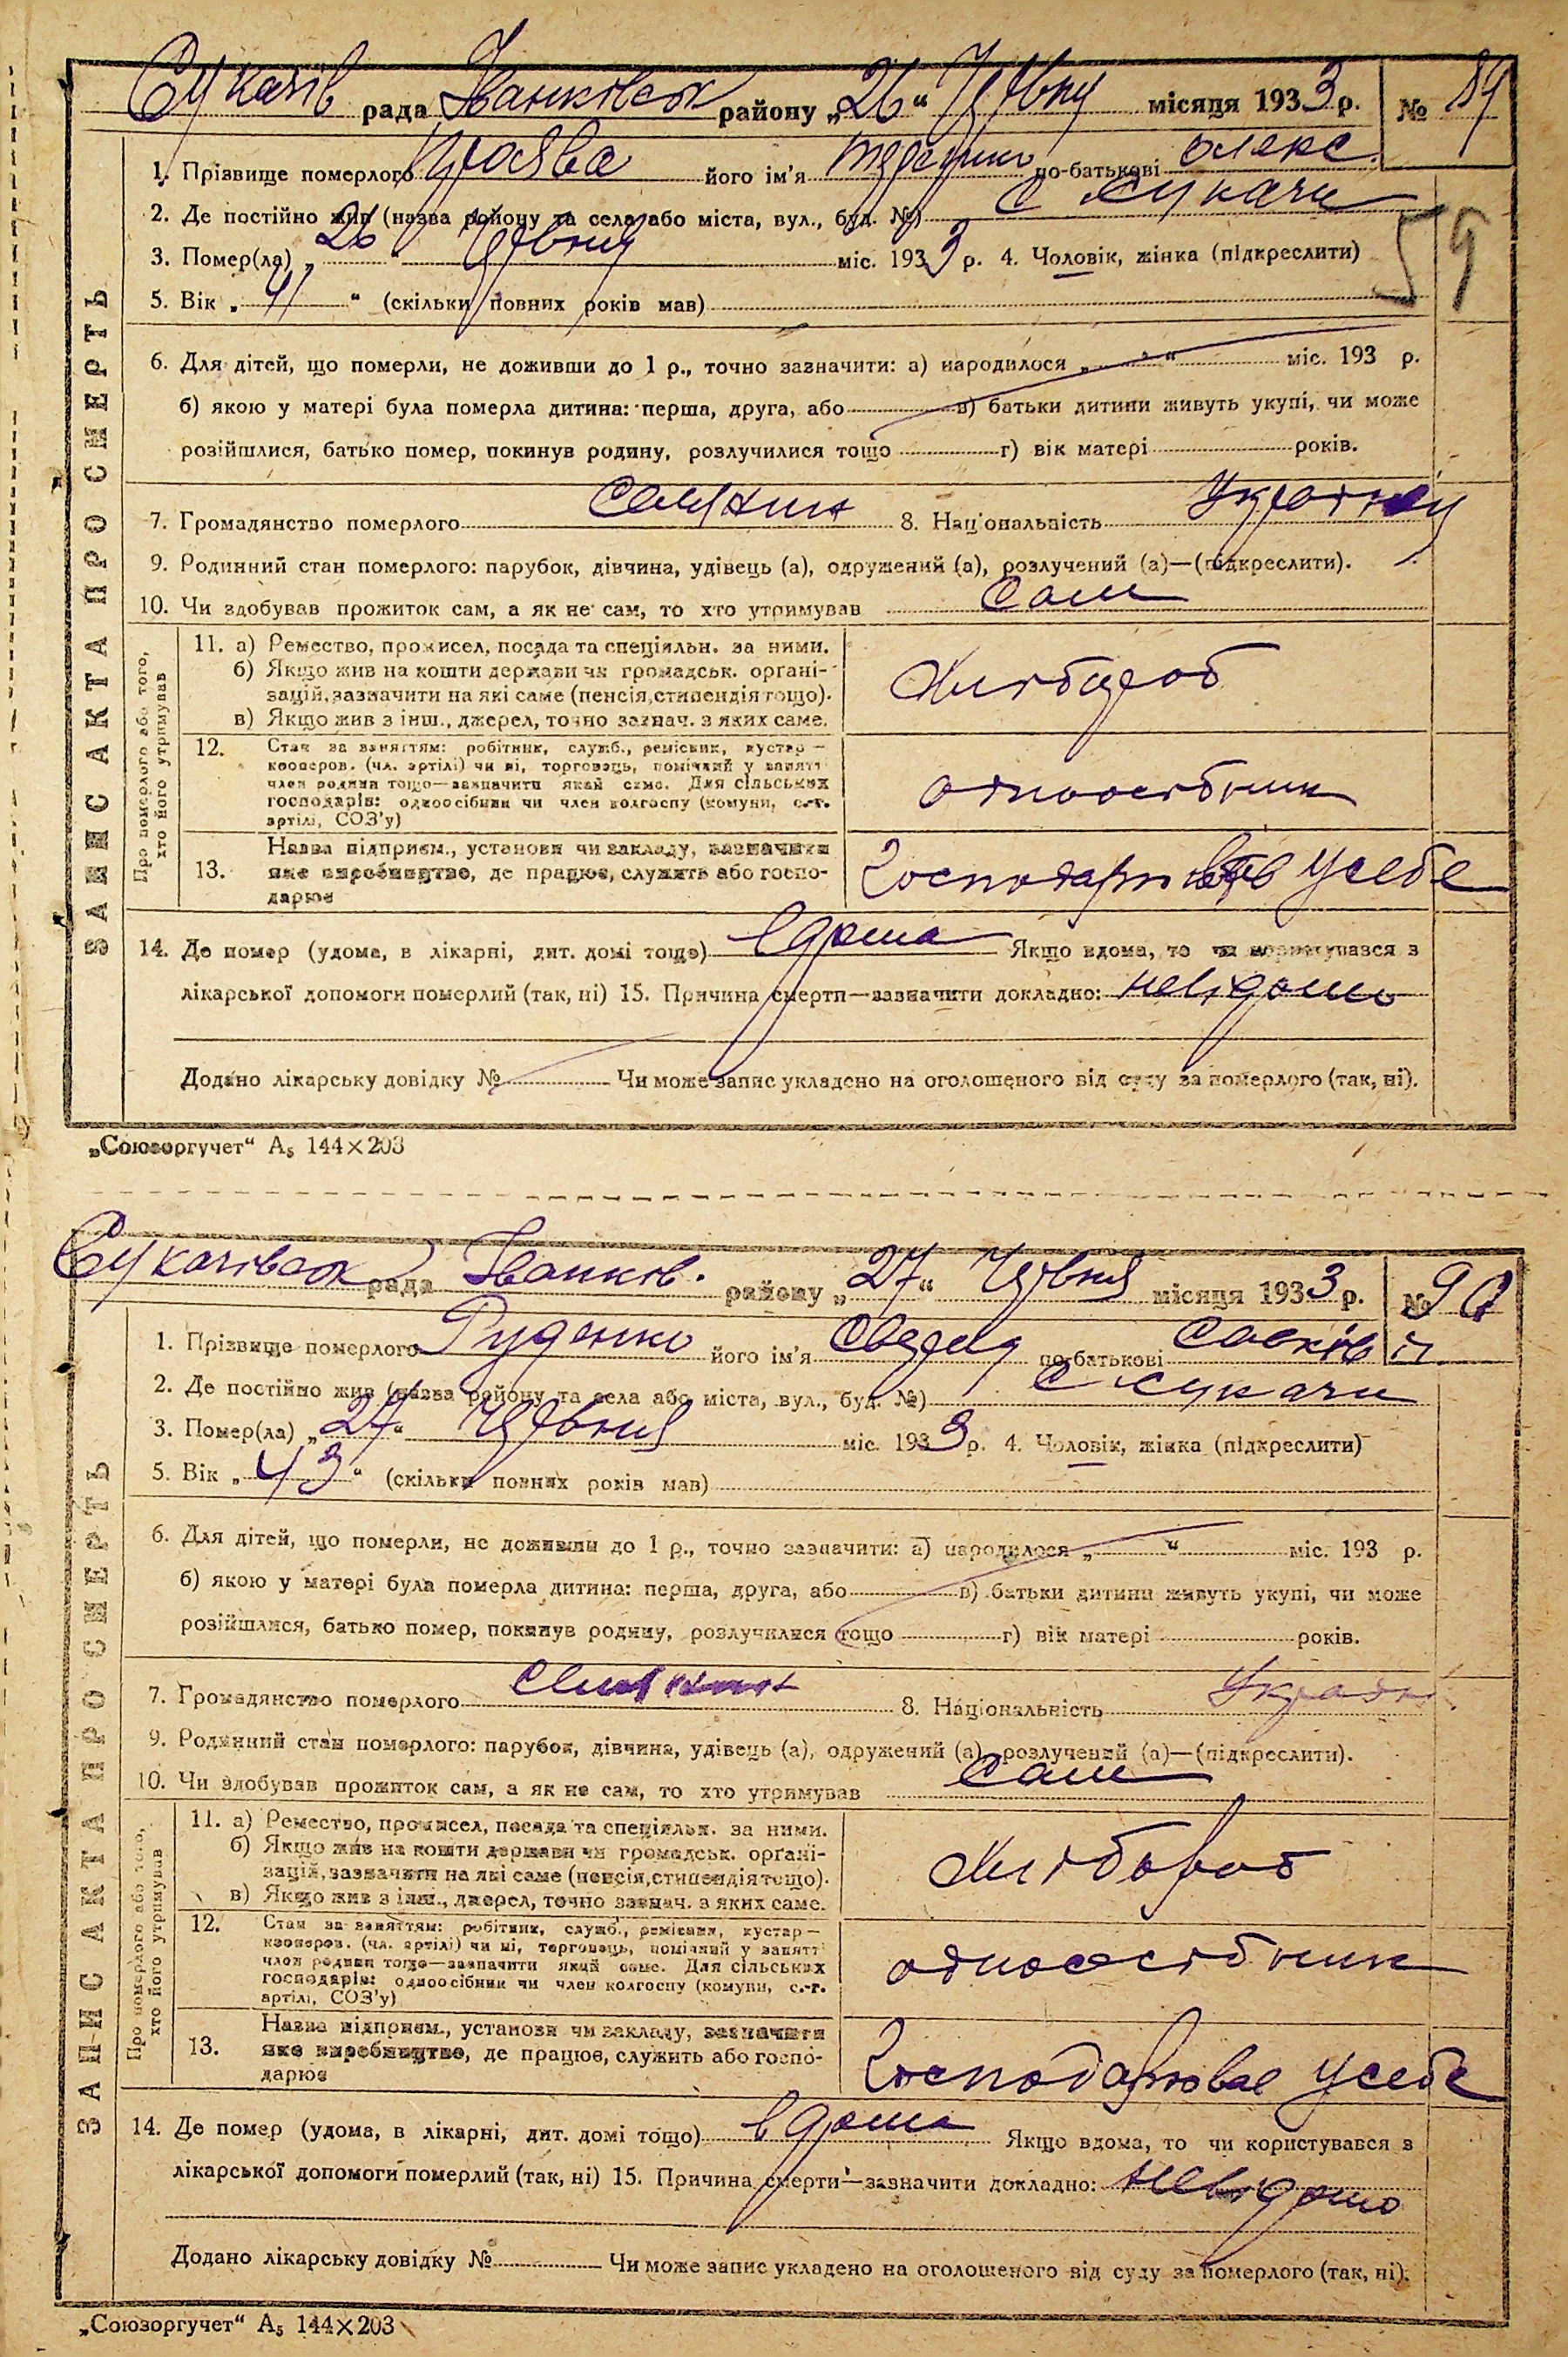 Сукачів рада Іванківськ району „26“ Червня місяця 1933 р. № 89
1. Прізвище померлого його ім'я по-батькові Олекс.
2. Де постійно жив (назва району та села або міста, вул., буд. №) с Сукачи
3. Помер(ла) „26“ Червня міс. 1933 р. 4. Чоловік, жінка (підкреслити)
59
5. Вік „41“ (скільки повних років мав)
6. Для дітей, що померли, не доживши до 1 р., точно зазначити: а) народилося „ “ міс. 193 р.
б) якою у матері була померла дитина: перша, друга, або в) батьки дитини живуть укупі, чи може
розійшлися, батько помер, покинув родину, розлучилися тощо г) вік матері років.
7. Громадянство померлого 8. Національність
9. Родинний стан померлого: парубок, дівчина, удівець (а), одружений (а), розлучений (а)—(підкреслити).
10. Чи здобував прожиток сам, а як не сам, то хто утримував Сам
11. а) Ремество, промисел, посада та спеціяльн. за ними.
б) Якщо жив на кошти держави чи громадськ. органі-
зацій, зазначити на які саме (пенсія, стипендія тощо).
в) Якщо жив з інш., джерел, точно зазнач. з яких саме.
Хлібороб
12. Стан за заняттям: робітник, служб., ремісник, кустар—
кооперов. (чл. артілі) чи ні, торговець, помічний у занятті
член родини тощо—зазначити який саме. Для сільських
господарів: одноосібник чи член колгоспу (комуни, с.-г.
артілі, СОЗ'у)
одноосібник
13. Назва підприєм., установи чи закладу, зазначити
яке виробництво, де працює, служить або госпо-
дарює
Господарював у себе
14. Де помер (удома, в лікарні, дит. домі тощо) вдома Якщо вдома, то чи користувався з
лікарської допомоги померлий (так, ні) 15. Причина смерти—зазначити докладно: невідомо
Додано лікарську довідку № Чи може запис укладено на оголошеного від суду за померлого (так, ні).
ЗАПИС АКТА ПРО СМЕРТЬ
Про померлого або того,
хто його утримував
„Союзоргучет“ А₅ 144×203
Сукачівськ рада Іванків. району „27“ Червня місяця 1933 р. № 90
1. Прізвище померлого Руденко його ім'я по-батькові
2. Де постійно жив (назва району та села або міста, вул., буд. №) с Сукачи
3. Помер(ла) „27“ Червня міс. 1933 р. 4. Чоловік, жінка (підкреслити)
5. Вік „43“ (скільки повних років мав)
6. Для дітей, що померли, не доживши до 1 р., точно зазначити: а) народилося „ “ міс. 193 р.
б) якою у матері була померла дитина: перша, друга, або в) батьки дитини живуть укупі, чи може
розійшлися, батько помер, покинув родину, розлучилися тощо г) вік матері років.
7. Громадянство померлого 8. Національність Україн.
9. Родинний стан померлого: парубок, дівчина, удівець (а), одружений (а), розлучений (а)—(підкреслити).
10. Чи здобував прожиток сам, а як не сам, то хто утримував Сам
11. а) Ремество, промисел, посада та спеціяльн. за ними.
б) Якщо жив на кошти держави чи громадськ. органі-
зацій, зазначити на які саме (пенсія, стипендія тощо).
в) Якщо жив з інш., джерел, точно зазнач. з яких саме.
Хлібороб
12. Стан за заняттям: робітник, служб., ремісник, кустар—
кооперов. (чл. артілі) чи ні, торговець, помічний у занятті
член родини тощо—зазначити який саме. Для сільських
господарів: одноосібник чи член колгоспу (комуни, с.-г.
артілі, СОЗ'у)
одноосібник
13. Назва підприєм., установи чи закладу, зазначити
яке виробництво, де працює, служить або госпо-
дарює
Господарював у себе
14. Де помер (удома, в лікарні, дит. домі тощо) вдома Якщо вдома, то чи користувався з
лікарської допомоги померлий (так, ні) 15. Причина смерти—зазначити докладно: невідомо
Додано лікарську довідку № Чи може запис укладено на оголошеного від суду за померлого (так, ні).
ЗАПИС АКТА ПРО СМЕРТЬ
Про померлого або того,
хто його утримував
„Союзоргучет“ А₅ 144×203